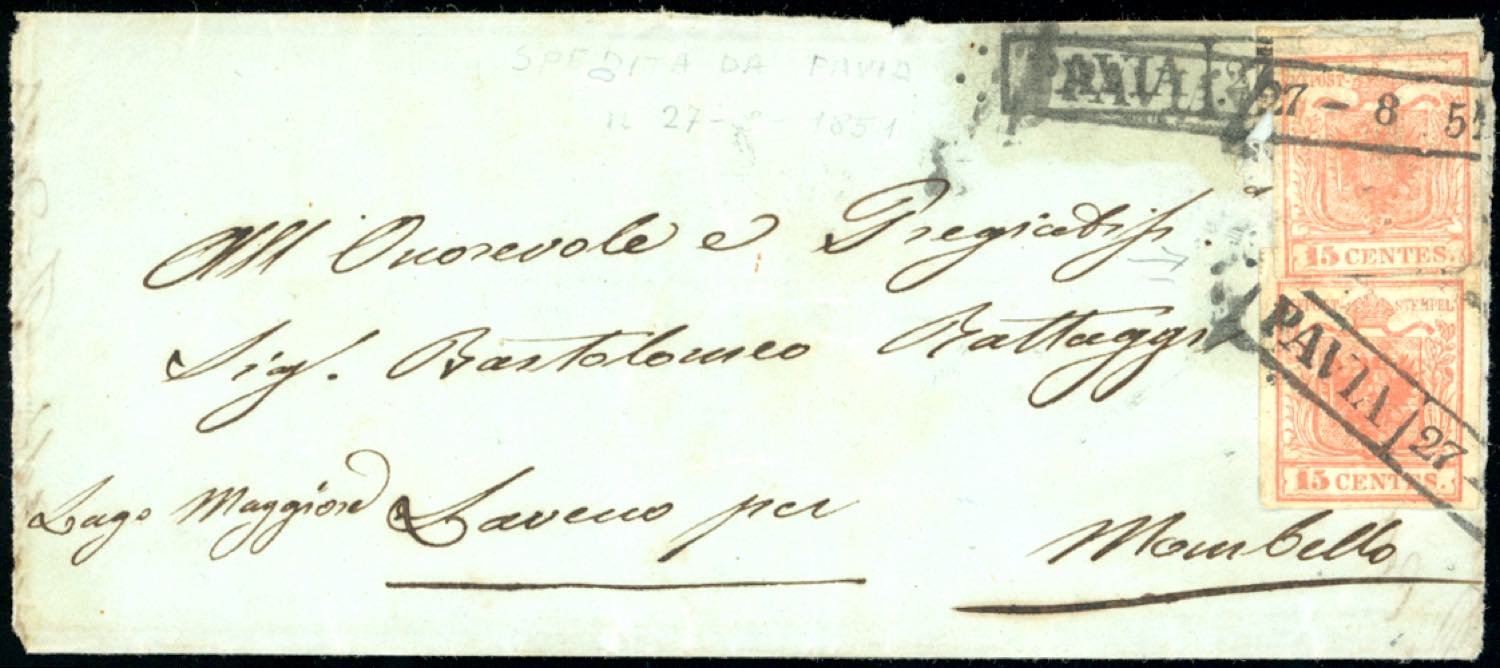 SPEDITA DA PAVIA
il 27-8-1851
PAVIA 27
PAVIA 27 - 8 51
POST-
15 CENTES.
All Onorevole e Pregiatiss.
Sigr. Bartolomeo Battaggi
STEMPEL
PAVIA 27
15 CENTES.
Lago Maggiore Laveno per Mombello